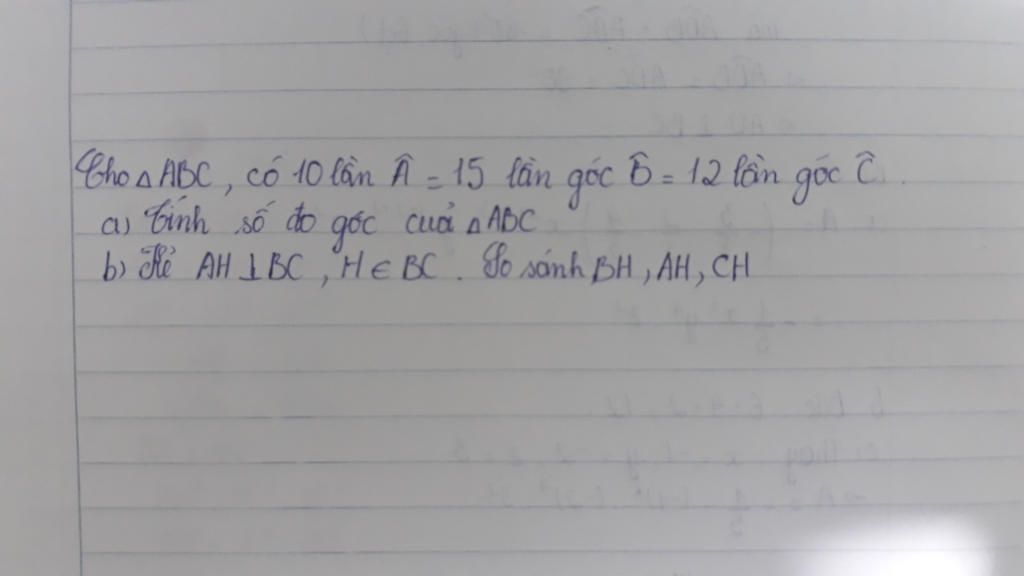 Cho △ABC, có 10 lần Â = 15 lần góc B̂ = 12 lần góc Ĉ.
a) Tính số đo góc cuả △ABC
b) Kẻ AH ⊥ BC, H ∈ BC. So sánh BH, AH, CH